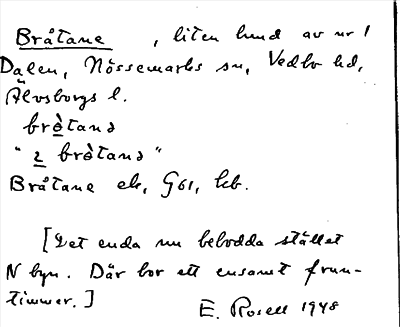 Bråtane , liten lund av nr 1
Dalen, Nössemarks sn, Vedbo hd,
Älvsborgs l.
brò̱tanə
"ı̱ brò̱tanə"
Bråtane ek, G61, kb.
[Det enda nu bebodda stället
N byn. Där bor ett ensamt frun-
timmer.]
E. Rosell 1948